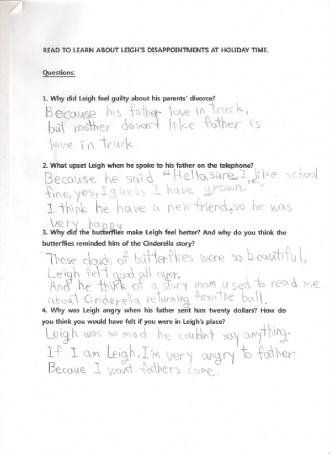 READ TO LEARN ABOUT LEIGH'S DISAPPOINTMENTS AT HOLIDAY TIME.
Questions:
1. Why did Leigh feel guilty about his parents' divorce?
Because his father love in truck,
but mother doesn't like father is
love in truck
2. What upset Leigh when he spoke to his father on the telephone?
Because he said "Hello, sure, I like school
fine, yes, I guess I have grown."
I think he have a new friend, so he was
very happy
3. Why did the butterflies make Leigh feel better? And why do you think the
butterflies reminded him of the Cinderella story?
Those clouds of butterflies were so beautiful,
Leigh felt good all over,
And he think of a story mom used to read me
about Cinderella returning from the ball.
4. Why was Leigh angry when his father sent him twenty dollars? How do
you think you would have felt if you were in Leigh's place?
Leigh was so mad he couldn't say anything.
If I am Leigh, I'm very angry to father
Becaue I want fathers come.